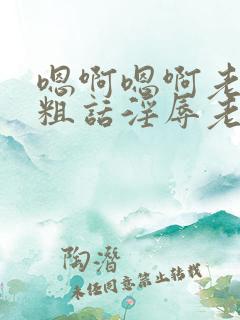 嗯啊嗯啊老
粗话淫辱老
陶潜
未经同意禁止转载